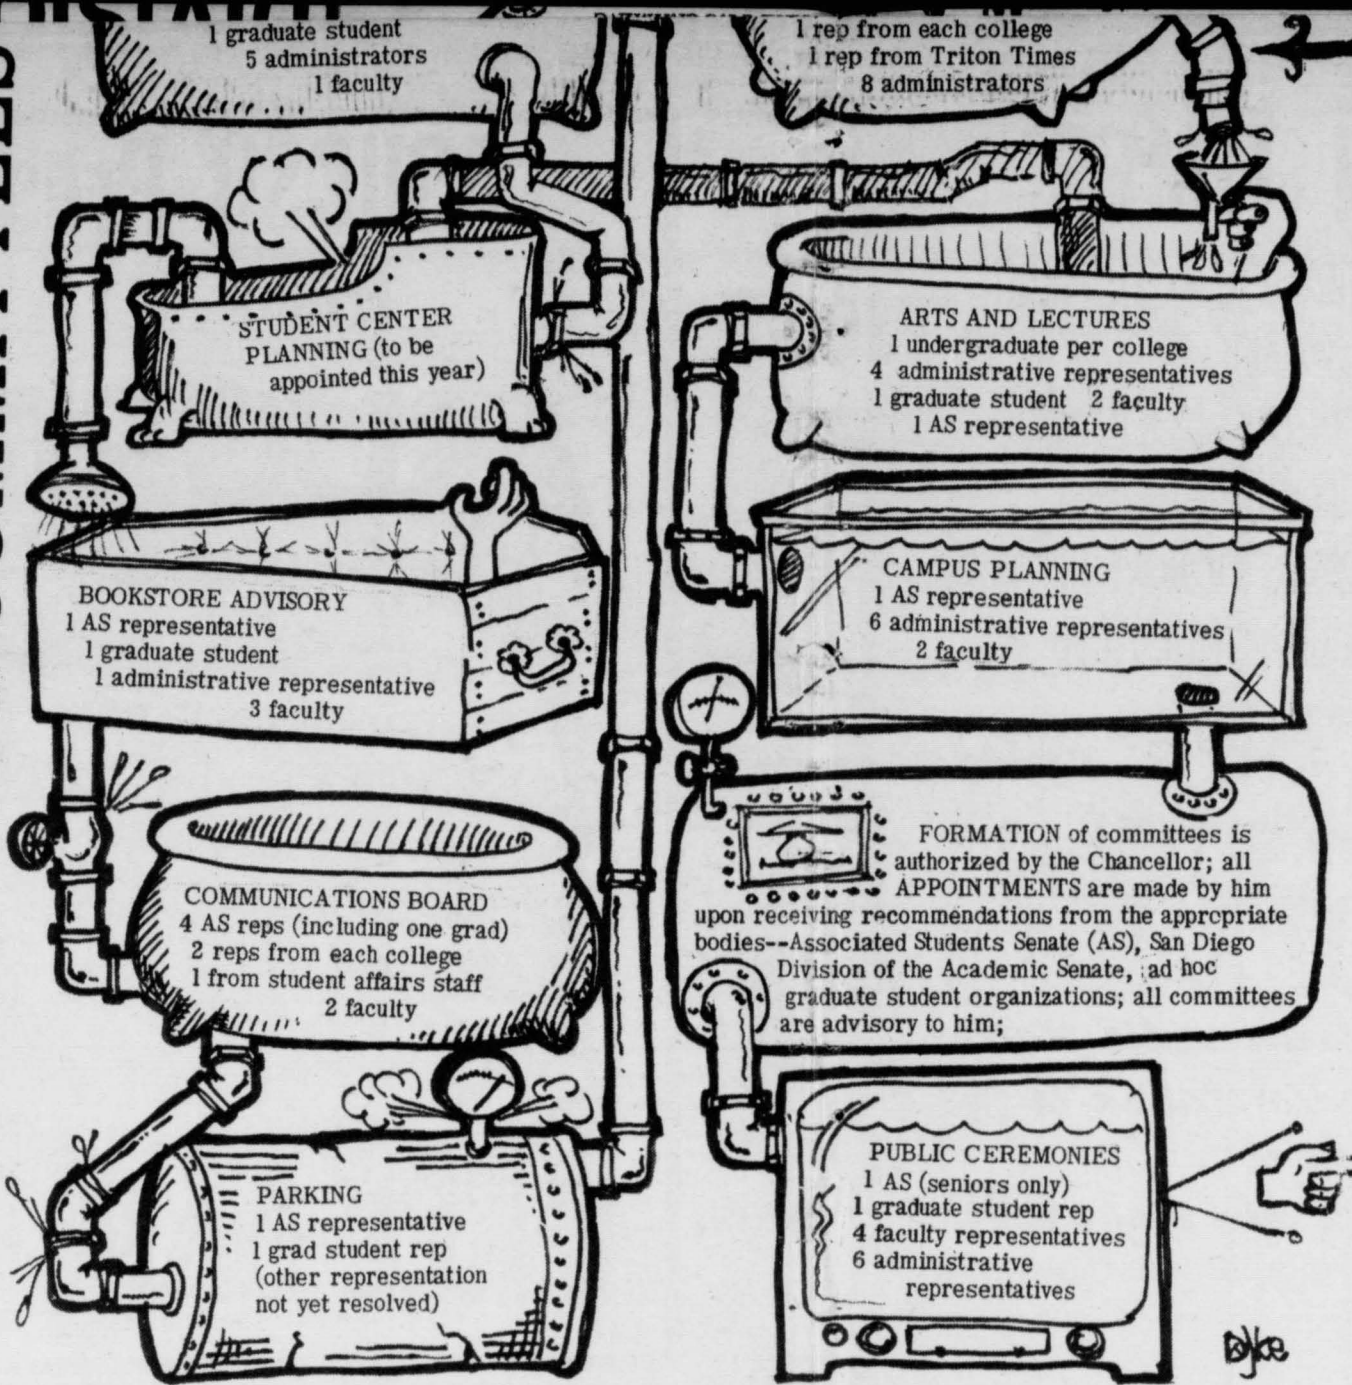 1 graduate student
5 administrators
1 faculty
1 rep from each college
1 rep from Triton Times
8 administrators
STUDENT CENTER
PLANNING (to be
appointed this year)
ARTS AND LECTURES
1 undergraduate per college
4 administrative representatives
1 graduate student 2 faculty
1 AS representative
BOOKSTORE ADVISORY
1 AS representative
1 graduate student
1 administrative representative
3 faculty
CAMPUS PLANNING
1 AS representative
6 administrative representatives
2 faculty
COMMUNICATIONS BOARD
4 AS reps (including one grad)
2 reps from each college
1 from student affairs staff
2 faculty
FORMATION of committees is
authorized by the Chancellor; all
APPOINTMENTS are made by him
upon receiving recommendations from the appropriate
bodies--Associated Students Senate (AS), San Diego
Division of the Academic Senate, ad hoc
graduate student organizations; all committees
are advisory to him;
PARKING
1 AS representative
1 grad student rep
(other representation
not yet resolved)
PUBLIC CEREMONIES
1 AS (seniors only)
1 graduate student rep
4 faculty representatives
6 administrative
representatives